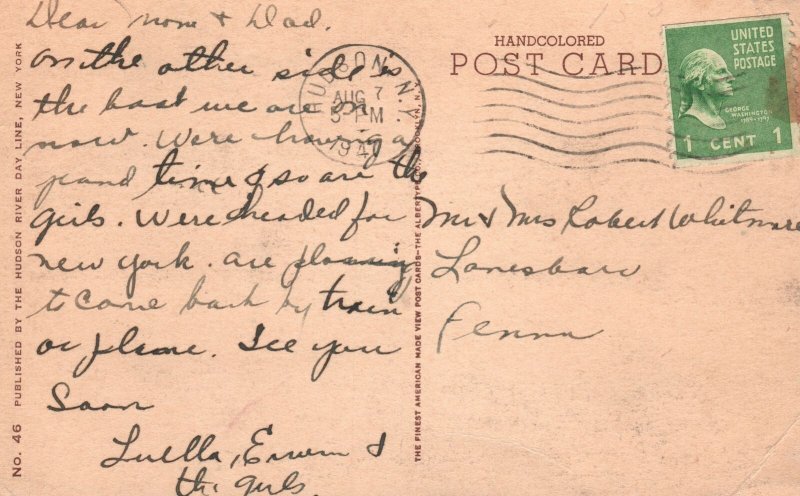 Dear mom & Dad.
on the other side is
the boat we are on
now. Were having a
grand time & so are the
girls. Were headed for
new york. are planning
to come back by train
or plane. See you
Soon
Luella, Erwin &
the girls.
HANDCOLORED
POST CARD
HUDSON, N.Y.
AUG 7
5 PM
1940
UNITED
STATES
POSTAGE
GEORGE
WASHINGTON
1789-1797
1 CENT 1
Mr & Mrs Robert Whitmore
Lanesboro
Penna
No. 46 PUBLISHED BY THE HUDSON RIVER DAY LINE, NEW YORK
THE FINEST AMERICAN MADE VIEW POST CARDS—THE ALBERTYPE CO., BROOKLYN, N.Y.